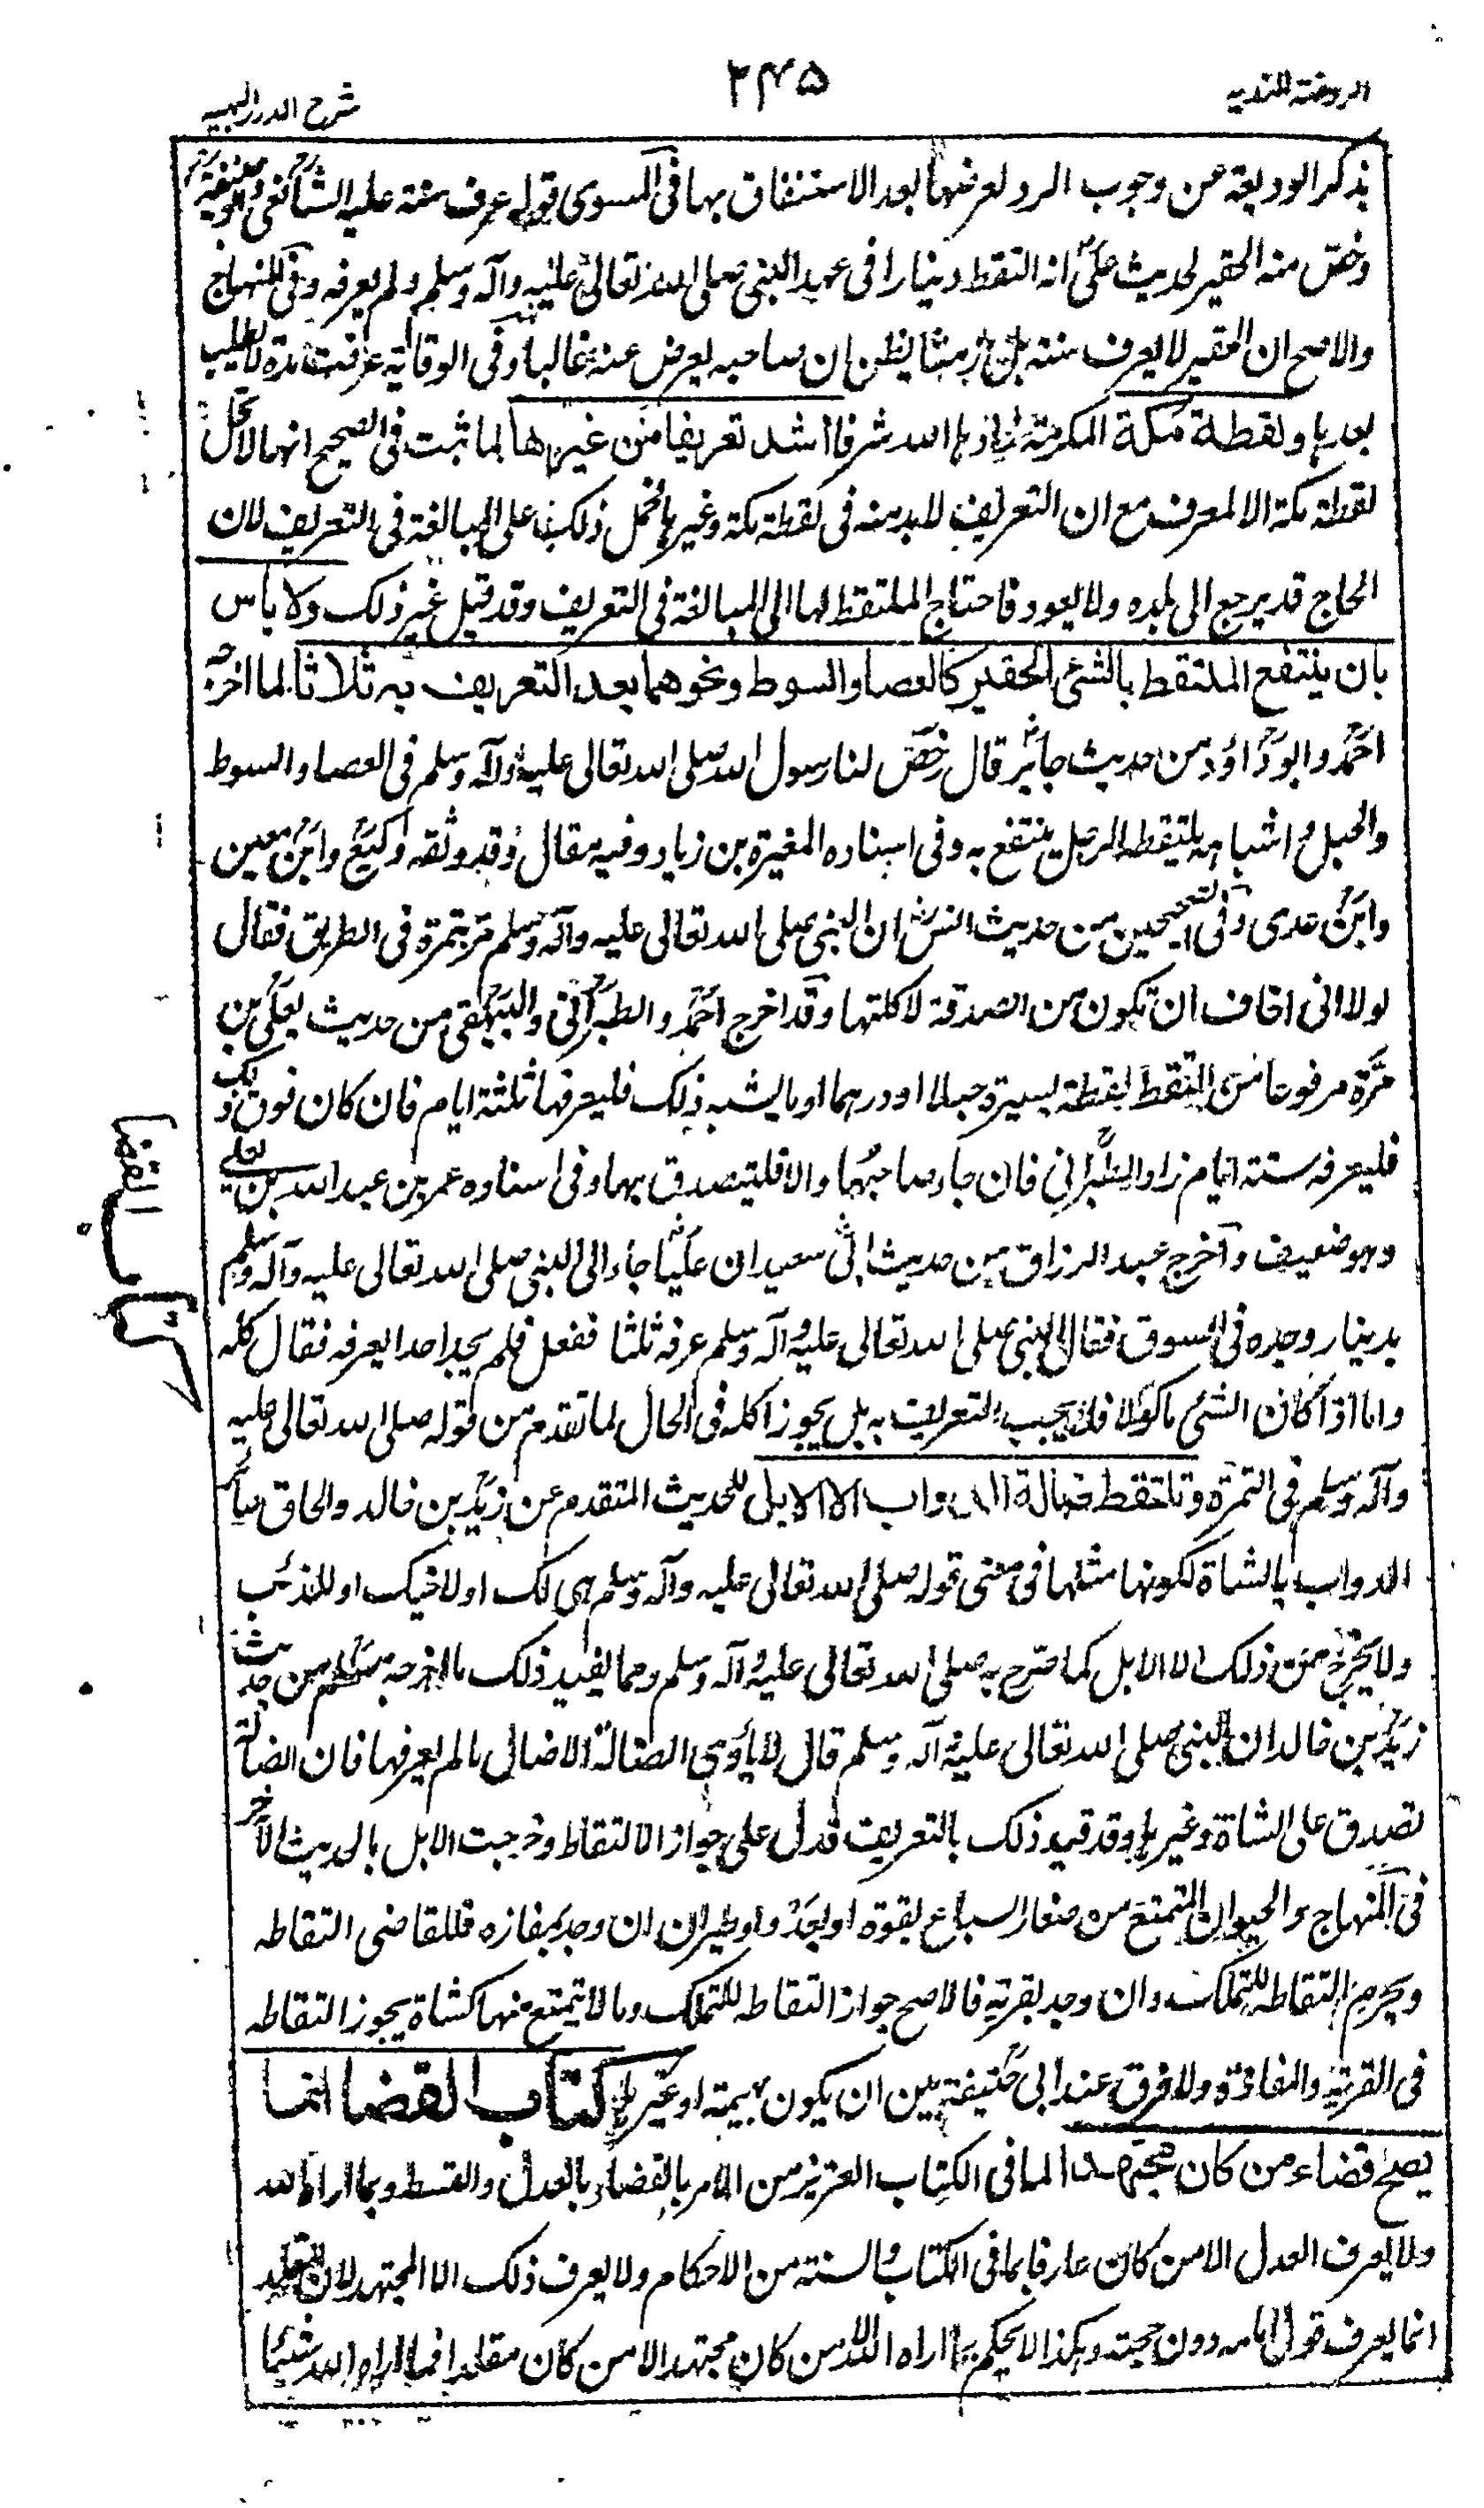 الروضة الندية
٢٤٥
شرح الدرر البهية
يذكر الوديعة عن وجوب الرد لعرفنها بعد الاستنفاق بها فى المسوى قوله عرف سنة عليه الشافعى وابو حنيفة
وخص منه الحقير لحديث على انه التقط دينارا فى عهد النبى صلى الله تعالى عليه وآله وسلم ولم يعرفه وفى المنهاج
والاصح ان الحقير لا يعرف سنة بل زمنا يظن ان صاحبه يعرض عنه غالبا وفى الوقاية عرفت مدة لا يطلب
بعدها ولقطة مكة المكرمة زادها الله شرفا اشد تعريفا من غيرها لما ثبت فى الصحيح انها لا تحل
لقطة مكة الا لمعرف مع ان التعريف لا بد منه فى لقطة مكة وغيرها فحمل ذلك على المبالغة فى التعريف لان
الحاج قد يرجع الى بلده ولا يعود فاحتاج الملتقط لها الى المبالغة فى التعريف وقد قيل غير ذلك ولا باس
بان ينتفع الملتقط بالشئ الحقير كالعصا والسوط ونحوهما بعد التعريف به ثلاثا لما اخرجه
احمد وابو داؤد من حديث جابر قال رخص لنا رسول الله صلى الله تعالى عليه وآله وسلم فى العصا والسوط
والحبل واشباهه يلتقطه الرجل ينتفع به وفى اسناده المغيرة بن زياد وفيه مقال وقد وثقه وكيع وابن معين
وابن عدى وفى الصحيحين من حديث انس ان النبى صلى الله تعالى عليه وآله وسلم مر بتمرة فى الطريق فقال
لولا انى اخاف ان تكون من الصدقة لاكلتها وقد اخرج احمد والطبرانى والبيهقى من حديث يعلى بن
مرة مرفوعا من التقط لقطة يسيرة حبلا او درهما او ما يشبه ذلك فليعرفها ثلثة ايام فان كان فوق ذلك
فليعرفه ستة ايام زاد الطبرانى فان جاء صاحبها والا فليتصدق بها وفى اسناده عمر بن عبد الله بن يعلى
وهو ضعيف واخرج عبد الرزاق من حديث ابى سعيد ان عليا جاء الى النبى صلى الله تعالى عليه وآله وسلم
بدينار وجده فى السوق فقال النبى صلى الله تعالى عليه وآله وسلم عرفه ثلثا ففعل فلم يجد احدا يعرفه فقال كله
واما اذا كان الشئ ماكولا فلا يجب التعريف به بل يجوز اكله فى الحال لما تقدم من قوله صلى الله تعالى عليه
وآله وسلم فى التمرة وتلتقط ضالة الدواب الا الابل للحديث المتقدم عن زيد بن خالد والحاق سائر
الدواب بالشاة لكونها مثلها فى معنى قوله صلى الله تعالى عليه وآله وسلم هى لك او لاخيك او للذئب
ولا يخرج من ذلك الا الابل كما صرح به صلى الله تعالى عليه وآله وسلم ومما يفيد ذلك ما اخرجه مسلم من حديث
زيد بن خالد ان النبى صلى الله تعالى عليه وآله وسلم قال لا يأوى الضالة الا ضال ما لم يعرفها فان الضالة
تصدق على الشاة وغيرها وقد قيد ذلك بالتعريف فدل على جواز الالتقاط وخرجت الابل بالحديث الآخر
فى المنهاج والحيوان المتمتع من صغار السباع بقوة او بعدو او طيران ان وجد بمفازه فللقاضى التقاطه
ويحرم التقاطه للتملك وان وجد بقرية فالاصح جواز التقاطه للتملك وما لا يتمتع منها كشاة يجوز التقاطه
فى القرية والمفازة ولا فرق عند ابى حنيفة بين ان يكون بهيمة او غيرها كتاب القضا انما
يصح قضاء من كان مجتهدا لما فى الكتاب العزيز من الامر بالقضاء بالعدل والقسط وبما اراه الله
ولا يعرف العدل الا من كان عارفا بما فى الكتاب والسنة من الاحكام ولا يعرف ذلك الا المجتهد لان المقلد
انما يعرف قول امامه دون حجته وهكذا لا يحكم بما اراه الله الا من كان مجتهدا لا من كان مقلدا فما اراه الله شيئا
كتاب القضا